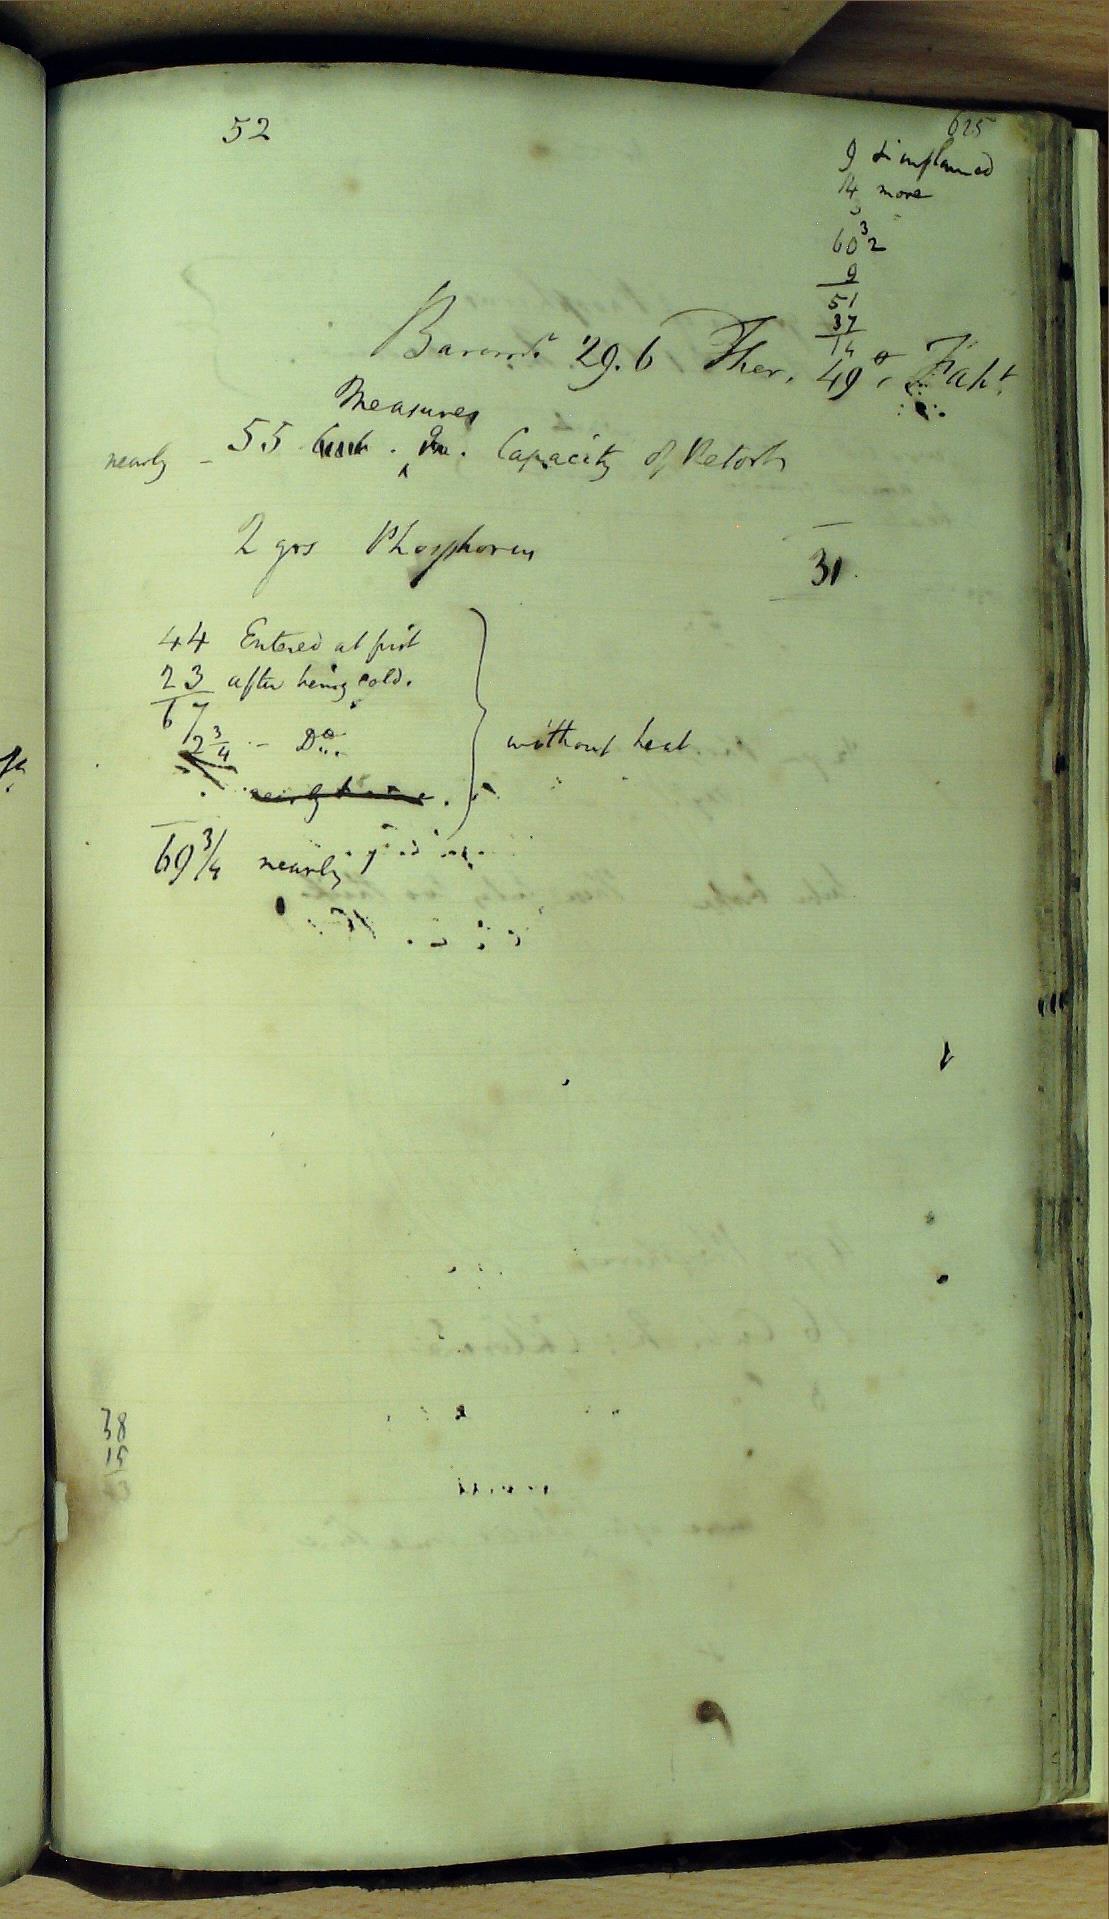 52
625
9
14 more
60 2
9
51
37
14
Baromr 29.6 Ther. 49° Faht
Measures
nearly - 55 Cub. In. Capacity of Retort
2 grs Phosphorus
31
44 Entered at first
23 after being cold.
67
2 3/4 - Do
without heat
69 3/4 nearly
38
15